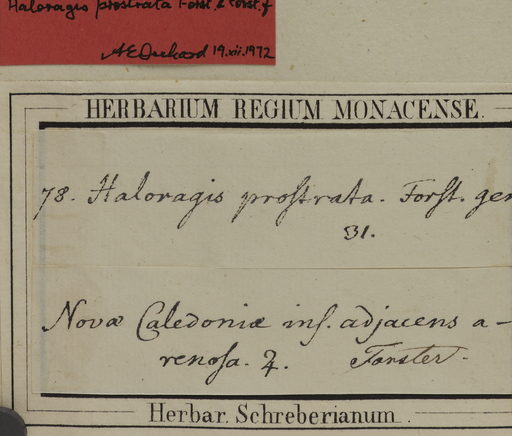 Haloragis prostrata Forst. & Forst. f
AEOrchard 19.xii.1972
HERBARIUM REGIUM MONACENSE.
78. Haloragis proſtrata. Forſt. gen
31.
Novæ Caledoniæ inſ. adjacens a-
renoſa. ♃. Forster.
Herbar. Schreberianum.